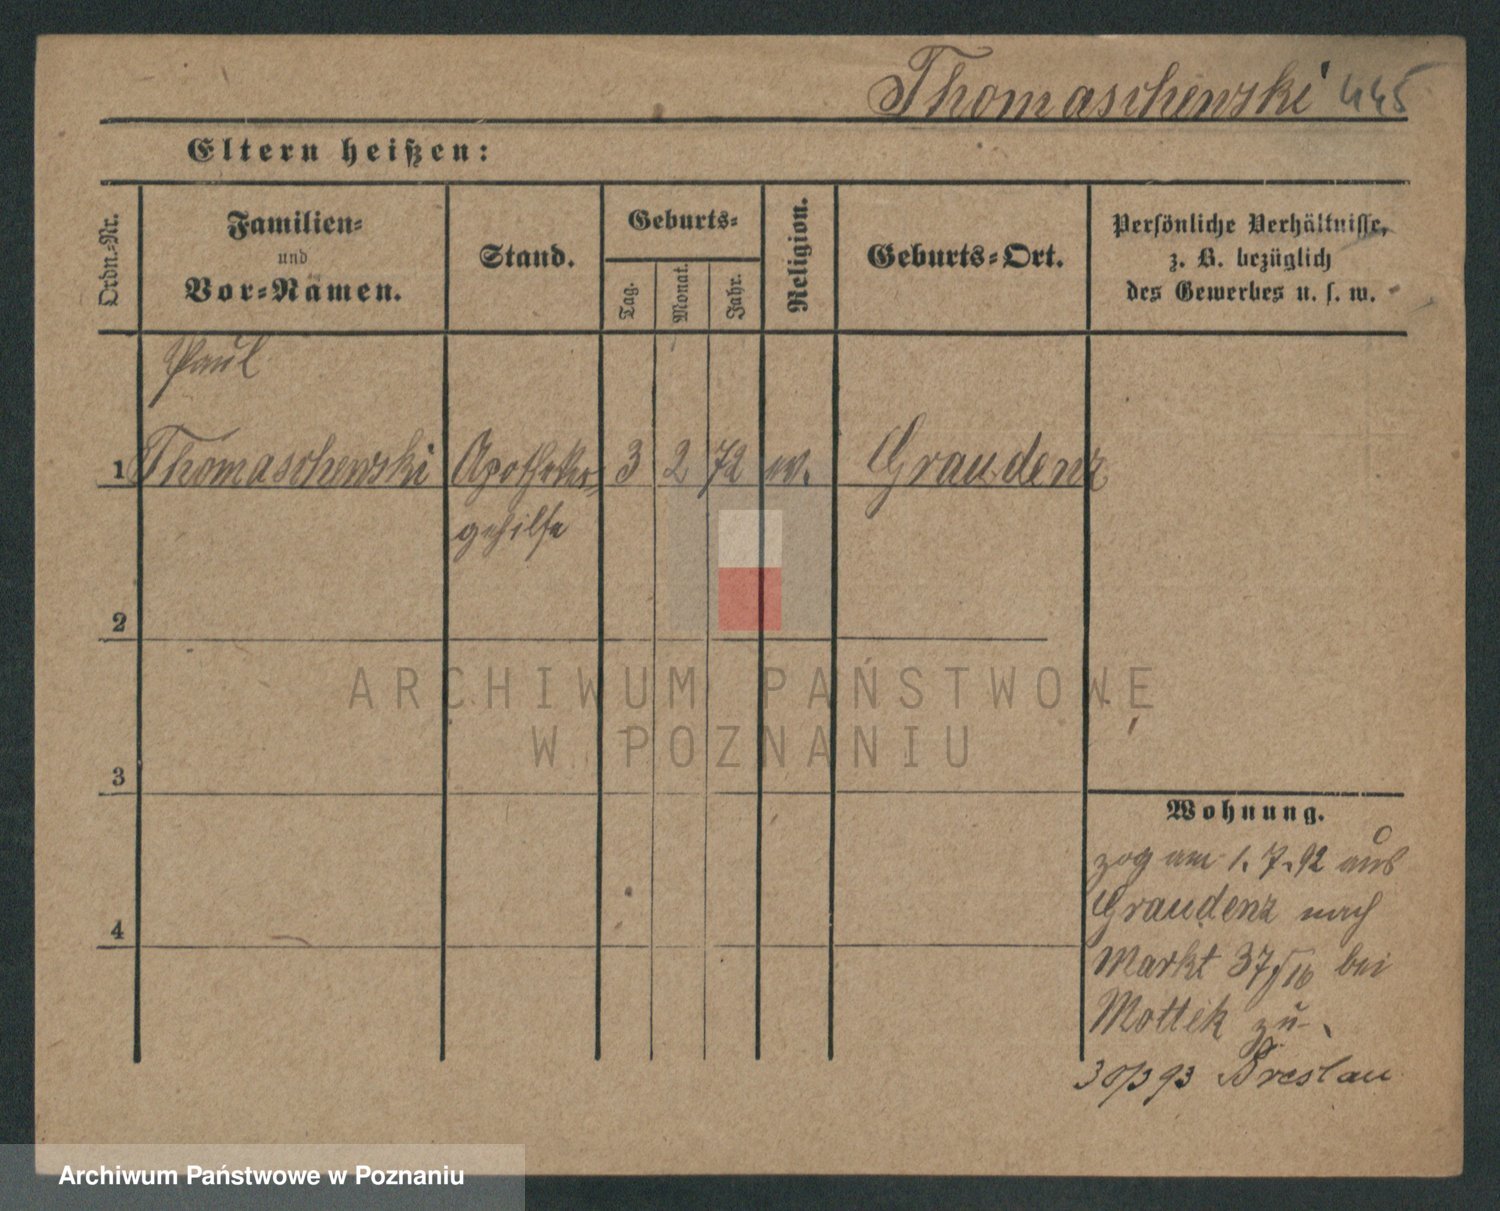 Thomaschewski 445
Eltern heißen:
Ordn.-Nr.
Familien-
und
Vor-Namen.
Stand.
Geburts-
Tag.
Monat.
Jahr.
Religion.
Geburts-Ort.
Persönliche Verhältnisse,
z. B. bezüglich
des Gewerbes u. s. w.
Paul
1 Thomaschewski Apotheker- 3 2 72 ev. Graudenz
gehilfe
2
3
4
Wohnung.
zog am 1.7.92 aus
Graudenz nach
Markt 37 bei
Mottek zu
30/3 93 Breslau
ARCHIWUM PAŃSTWOWE
W POZNANIU
Archiwum Państwowe w Poznaniu